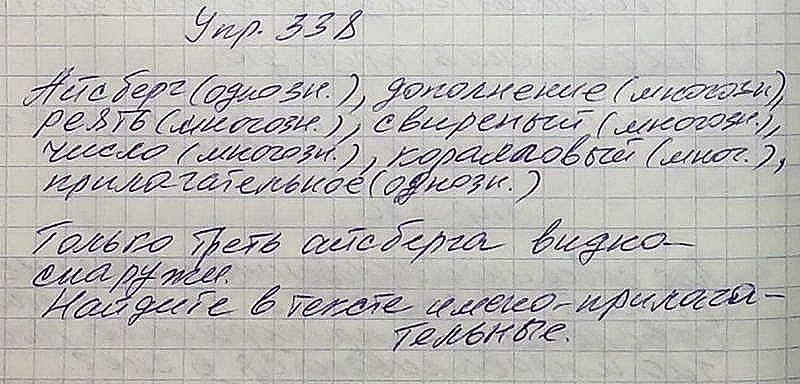 Упр. 338
Айсберг (однозн.), дополнение (многозн),
реять (многозн.), свиреный (многозн.),
число (многозн.), коралловый (мног.),
прилагательное (однозн.)
Только треть айсберга видно
снаружи.
Найдите в тексте имена-прилага-
тельные.